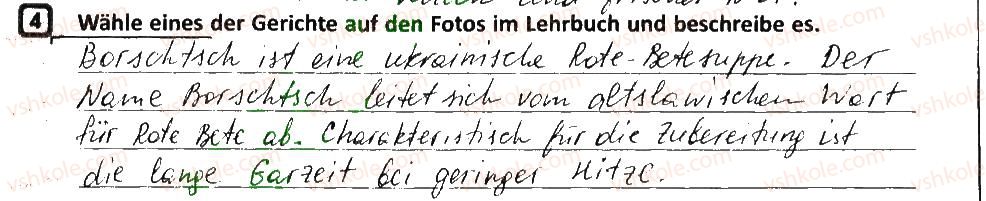 4 Wähle eines der Gerichte auf den Fotos im Lehrbuch und beschreibe es.
Borschtsch ist eine ukrainische Rote-Betesuppe. Der
Name Borschtsch leitet sich vom altslawischen Wort
für Rote Bete ab. Charakteristisch für die Zubereitung ist
die lange Garzeit bei geringer Hitze.